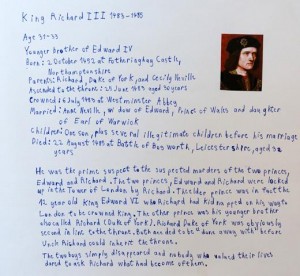 King Richard III 1483-1485
Age 31-33
Younger brother of Edward IV
Born: 2 October 1452 at Fotheringhay Castle,
Northamptonshire
Parents: Richard, Duke of York, and Cecily Neville
Ascended to the throne: 25 June 1483 aged 30 years
Crowned: 6 July 1483 at Westminster Abbey
Married: Anne Neville, widow of Edward, Prince of Wales and daughter
of Earl of Warwick
Children: One son, plus several illegitimate children before his marriage
Died: 22 August 1485 at Battle of Bosworth, Leicestershire, aged 32
years
He was the prime suspect to the suspected murders of the two princes,
Edward and Richard. The two princes, Edward and Richard were locked
up in the Tower of London by Richard. The elder prince was in fact the
12 year old King Edward VI who Richard had kidnapped on his way to
London to be crowned King. The other prince was his younger brother
also called Richard (Duke of York). Richard Duke of York was obviously
second in line to the throne. Both needed to be "done away with" before
Uncle Richard could inherit the throne.
The two boys simply disappeared and nobody who valued their lives
dared to ask Richard what had become of them.